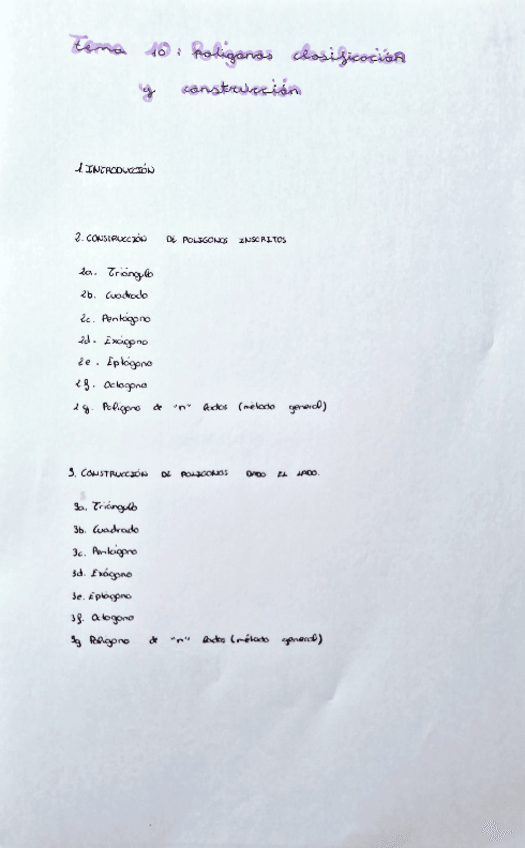 Tema 10: Polígonos clasificación
y construcción
1. INTRODUCCIÓN
2. CONSTRUCCIÓN DE POLIGONOS INSCRITOS
2a. Triángulo
2b. Cuadrado
2c. Pentágono
2d. Exágono
2e. Eptágono
2f. Octogono
2g. Polígono de "n" lados (método general)
3. CONSTRUCCIÓN DE POLIGONOS DADO EL LADO.
3a. Triángulo
3b. Cuadrado
3c. Pentágono
3d. Exágono
3e. Eptágono
3f. Octogono
3g Polígono de "n" lados (método general)